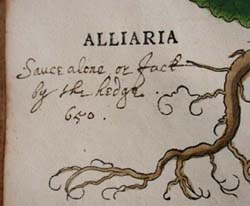 ALLIARIA
Sauce alone or Jack
by the hedge.
650.